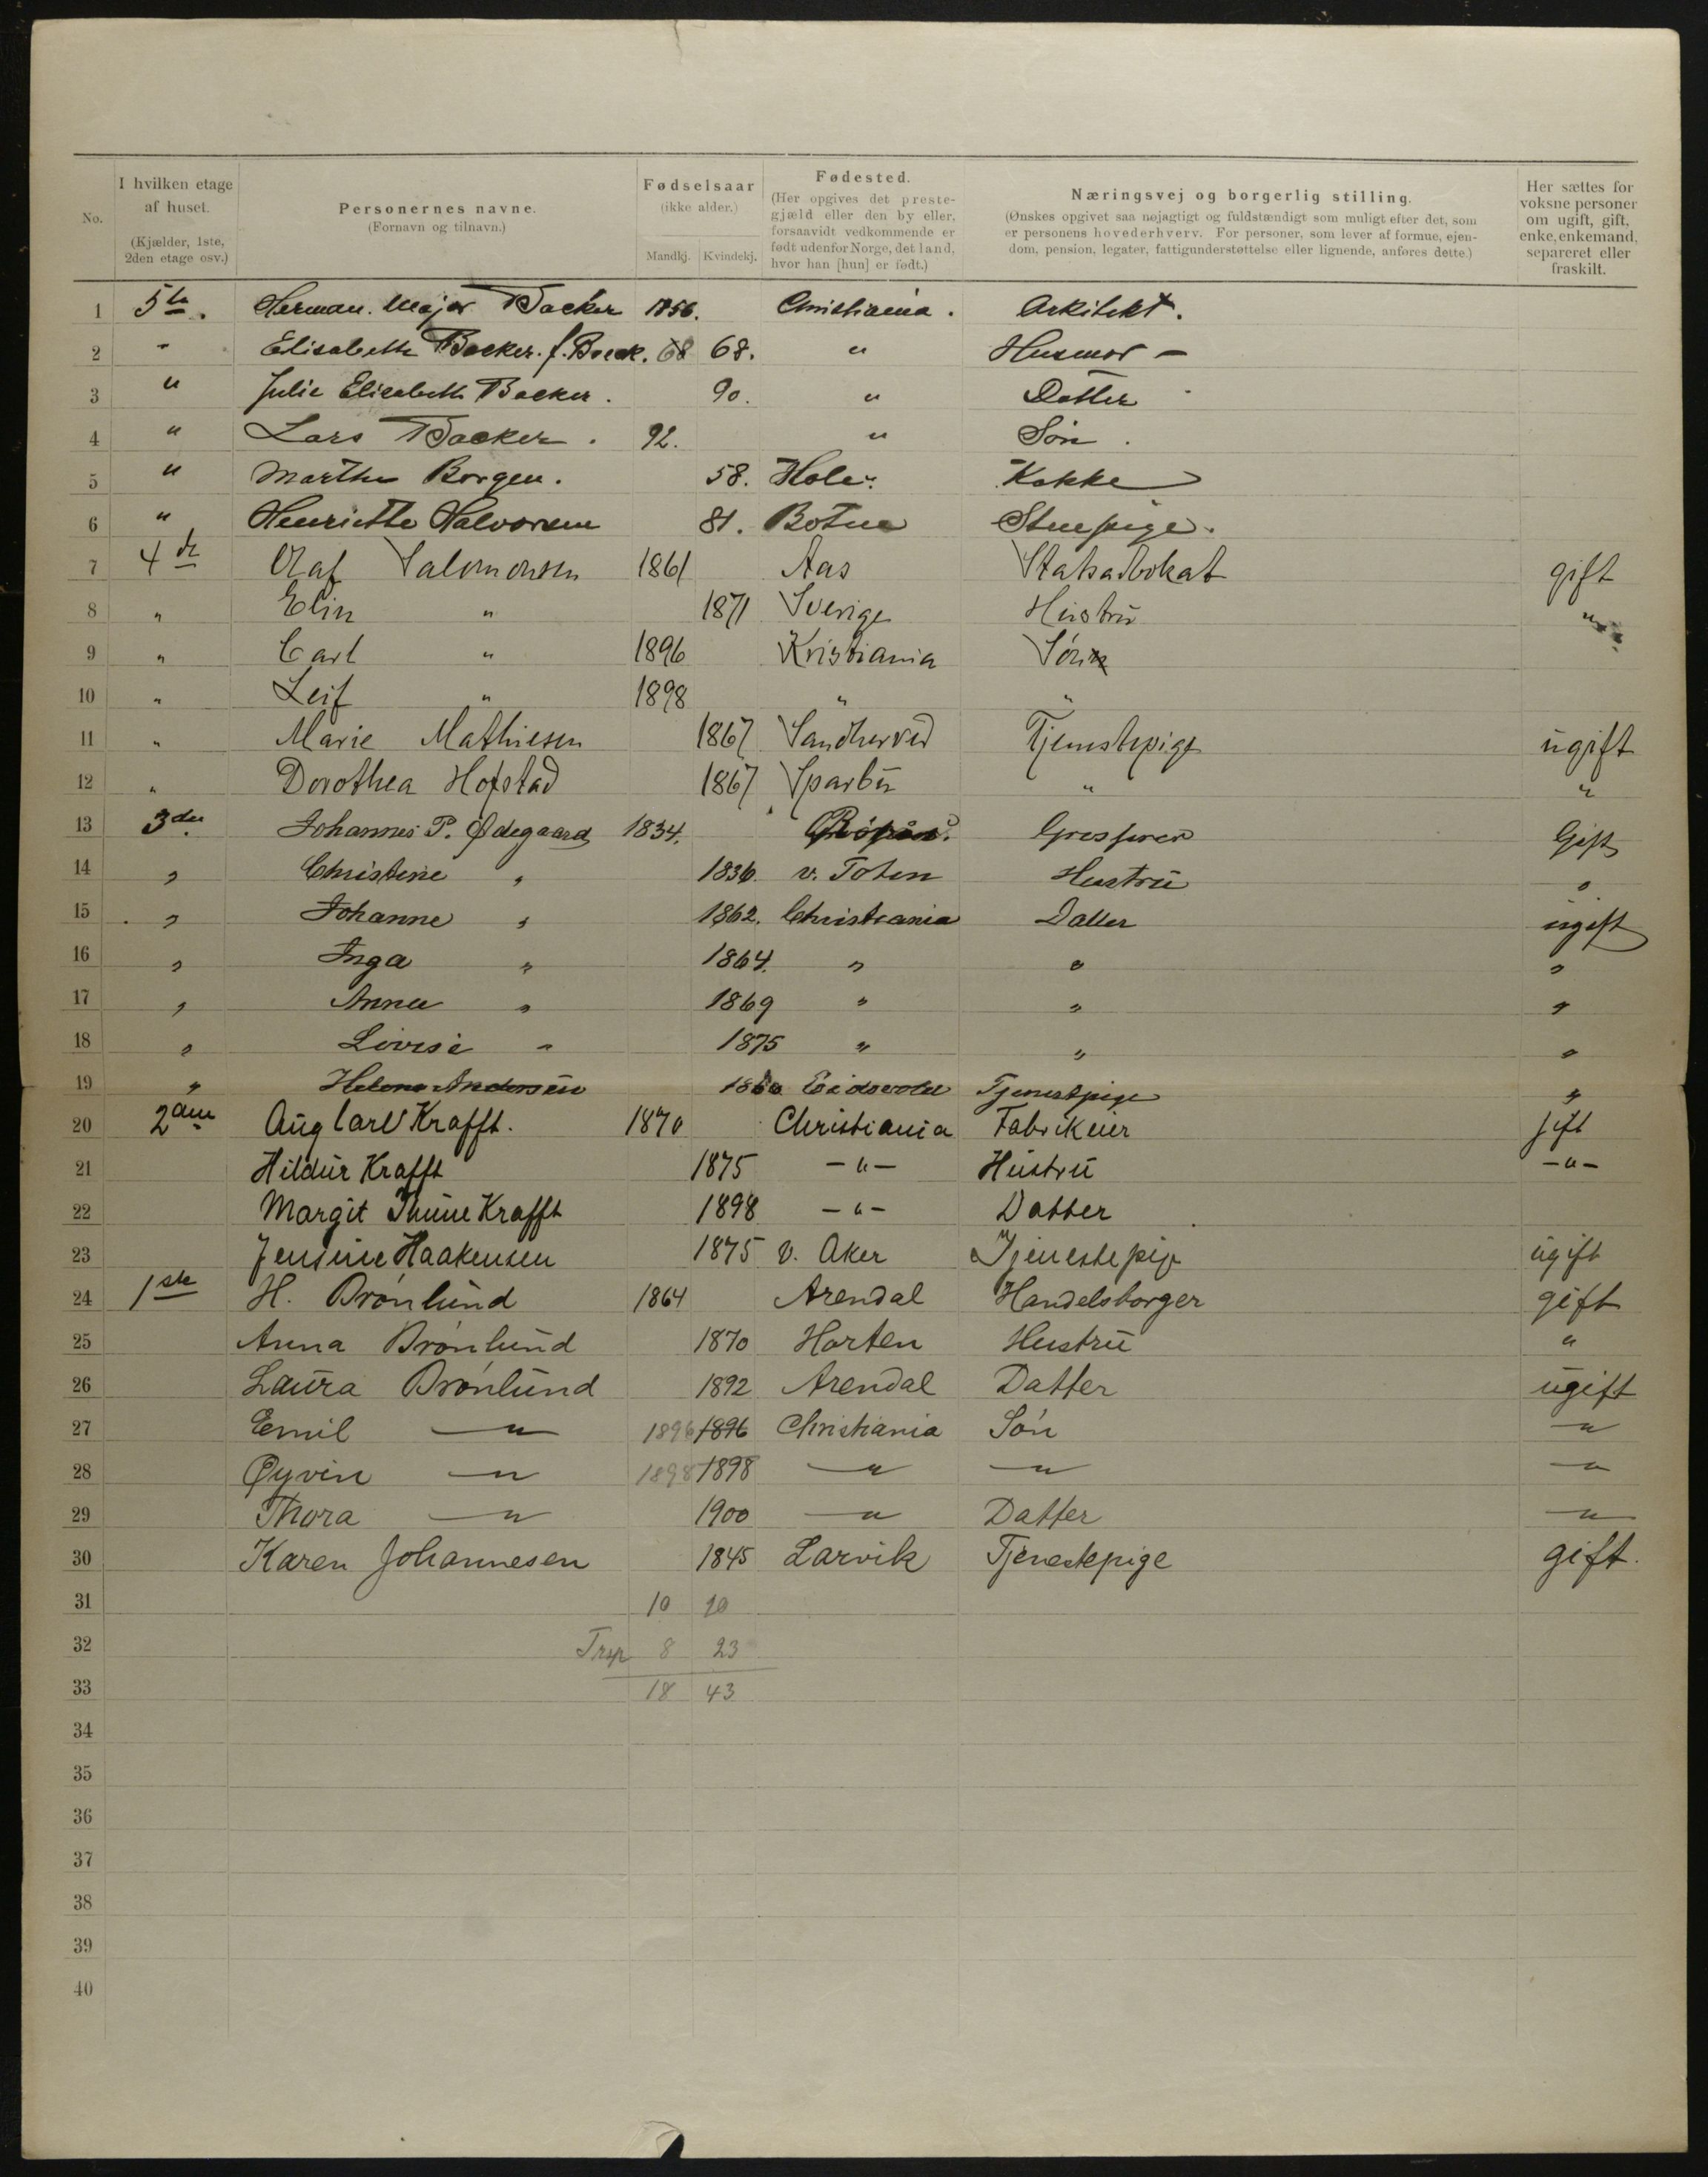 No. I hvilken etage af huset. (Kjælder, 1ste, 2den etage osv.) Personernes navne. (Fornavn og tilnavn.) Fødselsaar (ikke alder.) Mandkj. Kvindekj. Fødested. (Her opgives det prestegjæld eller den by eller, forsaavidt vedkommende er født udenfor Norge, det land, hvor han [hun] er født.) Næringsvej og borgerlig stilling. (Ønskes opgivet saa nøjagtigt og fuldstændigt som muligt efter det, som er personens hovederhverv. For personer, som lever af formue, ejendom, pension, legater, fattigunderstøttelse eller lignende, anføres dette.) Her sættes for voksne personer om ugift, gift, enke, enkemand, separeret eller fraskilt.
1 5te. Herman. Major Backer 1856. Christiania. Arkitekt.
2 " Elisabeth Backer. f. Boeck. 68 68. " Husmor –
3 " Julie Elisabeth Backer. 90. " Datter
4 " Lars Backer. 92. " Søn.
5 " Marthe Borgen. 58. Hole. Kokke
6 " Henriette Halvorsen 81. Botne Stuepige.
7 4de Olaf Salomonsen 1861 Aas Statsadvokat gift
8 " Elin " 1871 Sverige Hustru "
9 " Carl " 1896 Kristiania Søn
10 " Leif " 1898 " "
11 " Marie Mathiesen 1867 Sandherred Tjenestepige ugift
12 " Dorothea Hofstad 1867 Sparbu " "
13 3die Johannes P. Ødegaard 1834. Grosserer Gift
14 " Christine " 1836. v. Toten Hustru "
15 " Johanne " 1862. Christiania Datter ugift
16 " Inga " 1864. " " "
17 " Anna " 1869 " " "
18 " Lovise " 1875 " " "
19 " Helene Andersen 1860 Eidsvold Tjenestpige "
20 2den Aug Carl Krafft. 1870 Christiania Fabrikeier gift
21 Hildur Krafft 1875 –"– Hustru –"–
22 Margit Thune Krafft 1898 –"– Datter
23 Jensine Haakensen 1875 v. Aker Tjenestepige ugift
24 1ste H. Brønlund 1864 Arendal Handelsborger gift
25 Anna Brønlund 1870 Horten Hustru "
26 Laura Brønlund 1892 Arendal Datter ugift
27 Emil –"– 1896 1896 Christiania Søn –"–
28 Øyvin –"– 1898 1898 –"– –"– –"–
29 Thora –"– 1900 –"– Datter –"–
30 Karen Johannesen 1845 Larvik Tjenestepige gift.
31 10 20
32 Trsp 8 23
33 18 43
34
35
36
37
38
39
40